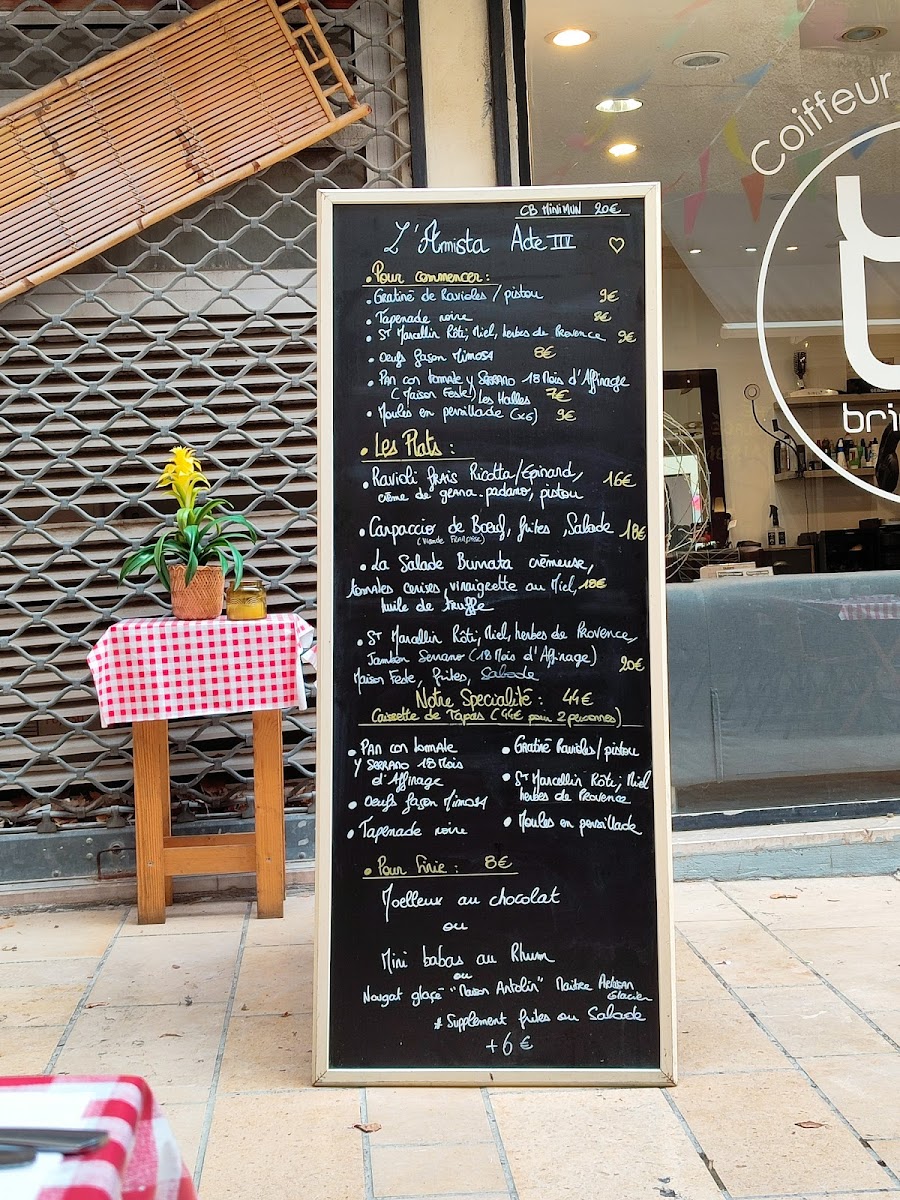 CB MINIMUN 20€
L'Armista Acte III
• Pour commencer :
• Gratiné de Ravioles / pistou 9€
• Tapenade noire 8€
• St Marcellin Rôti, Miel, herbes de Provence 9€
• Oeufs façon Mimosa 8€
• PAN con tomate y SERRANO 18 Mois d'Affinage
(Maison Feste!) Les Halles 7€
• Moules en persillade (x6) 9€
• Les Plats :
• Ravioli frais Ricotta/Epinard, 16€
crème de grana-padano, pistou
• Carpaccio de Bœuf, frites, Salade 18€
(Viande Française)
• La Salade Burrata crémeuse,
tomates cerises, vinaigrette au Miel, 18€
huile de truffe
• St Marcellin Rôti, Miel, herbes de Provence,
Jambon Serrano (18 Mois d'Affinage) 20€
Maison Feste, frites, Salade
Notre Specialité : 44€
Caissette de Tapas (44€ pour 2 personnes)
• PAN con tomate
y SERRANO 18 Mois
d'Affinage
• Oeufs façon Mimosa
• Tapenade noire
• Gratiné Ravioles/pistou
• St Marcellin Rôti, Miel
herbes de Provence
• Moules en persillade
• Pour Finir : 8€
Moelleux au chocolat
ou
Mini babas au Rhum
ou
Nougat glacé "Maison Antolin" Maitre Artisan
Glacier
* Supplement frites ou Salade
+6 €
Coiffeur
bri